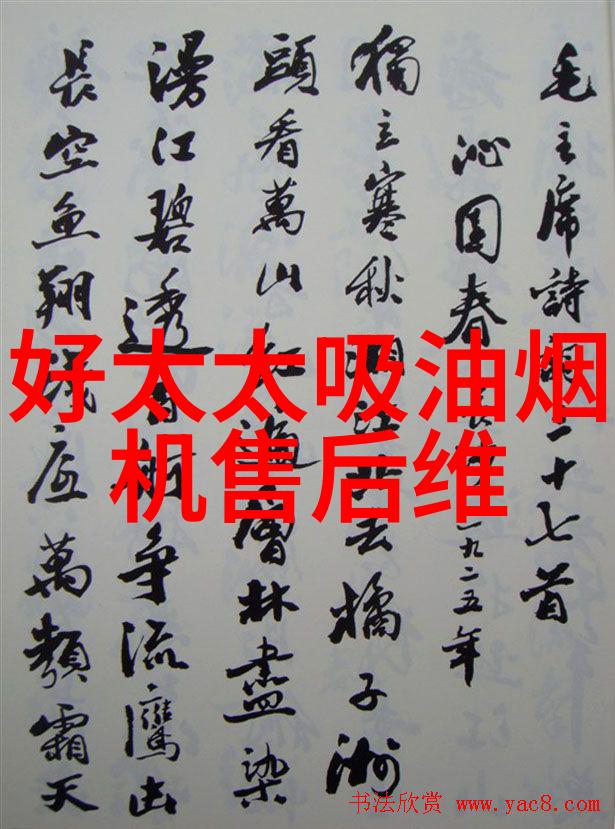 好太太吸油烟
机售后维
毛主席詩詞二十七首
沁园春 長沙 一九二五年
獨立寒秋湘江北去橘子洲
頭看萬山红遍層林盡染
漫江碧透百舸争流鷹击
長空鱼翔浅底萬類霜天
书法欣赏 www.yac8.com